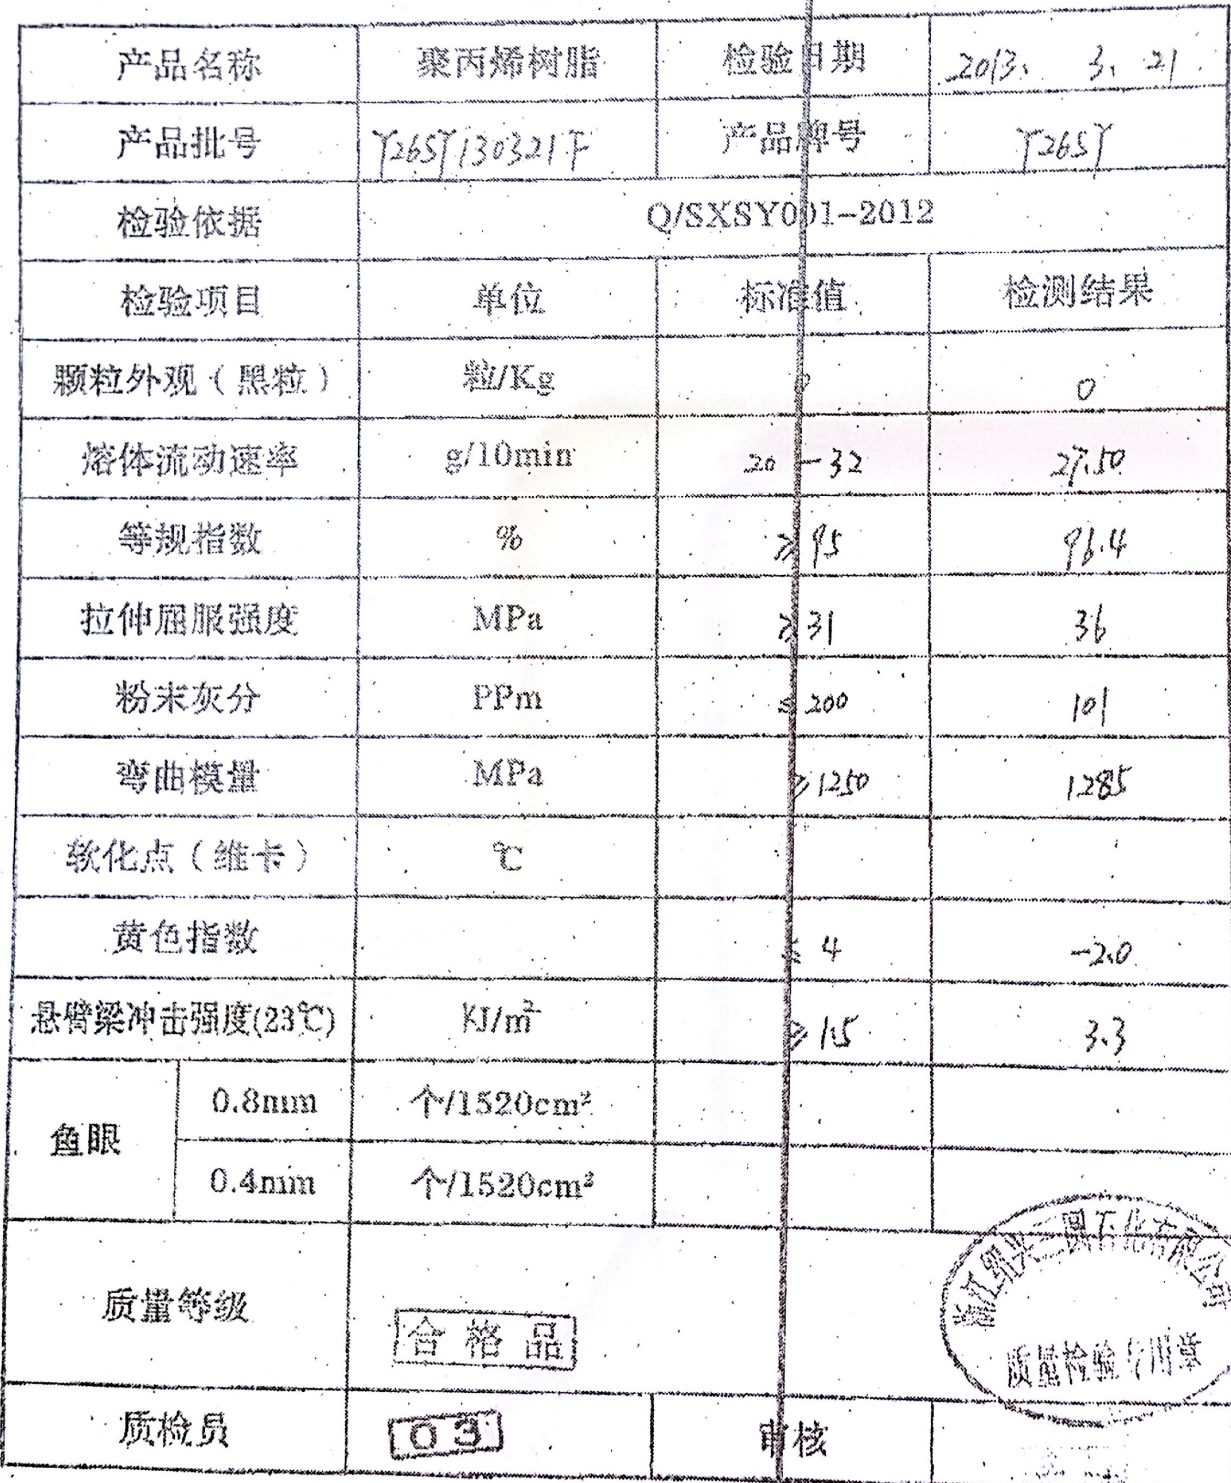 产品名称 聚丙烯树脂 检验日期 2013、 3、 21
产品批号 Y265Y130321F 产品牌号 Y265Y
检验依据 Q/SXSY001-2012
检验项目 单位 标准值 检测结果
颗粒外观（黑粒） 粒/Kg 0 0
熔体流动速率 g/10min 20-32 27.50
等规指数 % ≥95 96.4
拉伸屈服强度 MPa ≥31 36
粉末灰分 PPm ≤200 101
弯曲模量 MPa ≥1250 1285
软化点（维卡） ℃
黄色指数 ≤ 4 -2.0
悬臂梁冲击强度(23℃) KJ/m² ≥1.5 3.3
鱼眼 0.8mm 个/1520cm²
0.4mm 个/1520cm²
质量等级 合格品
浙江绍兴三圆石化有限公司
质量检验专用章
质检员 03 审核